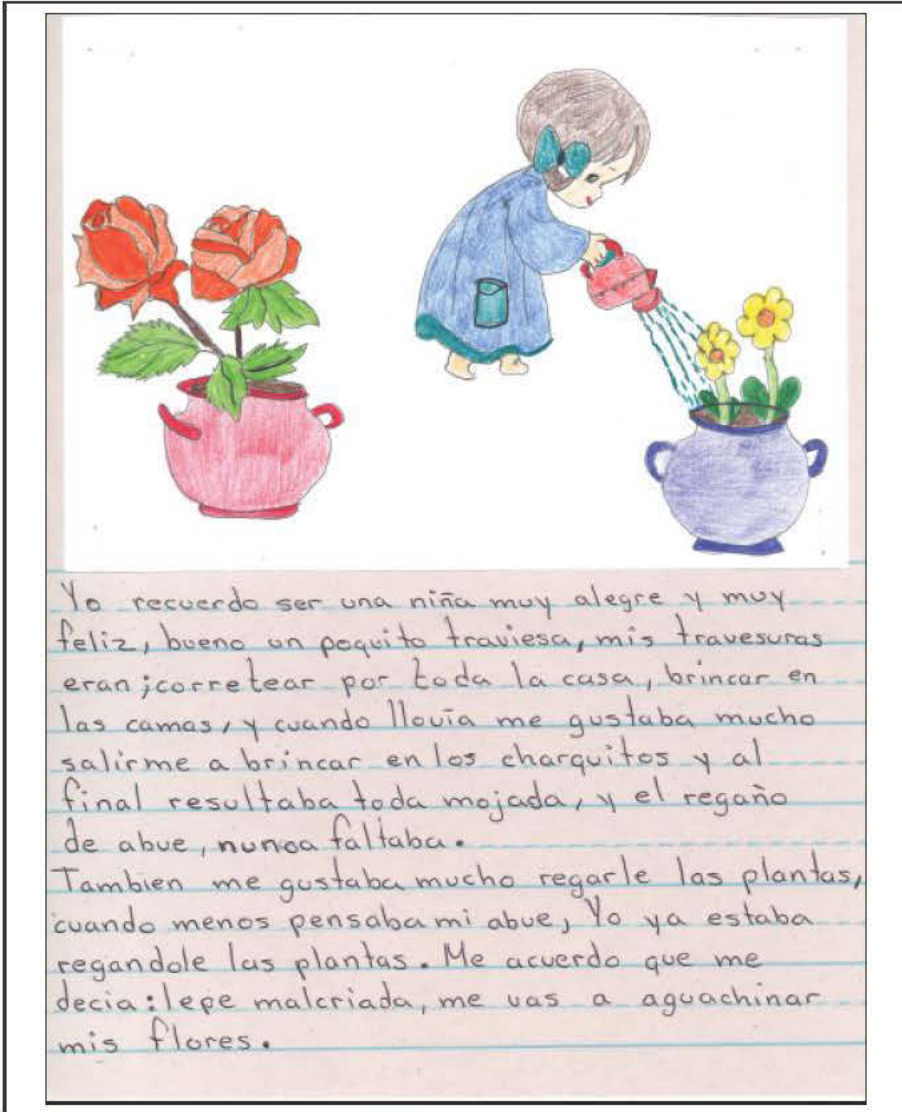 Yo recuerdo ser una niña muy alegre y muy
feliz, bueno un poquito traviesa, mis travesuras
eran; corretear por toda la casa, brincar en
las camas, y cuando llovia me gustaba mucho
salirme a brincar en los charquitos y al
final resultaba toda mojada, y el regaño
de abue, nunca faltaba.
Tambien me gustaba mucho regarle las plantas,
cuando menos pensaba mi abue, Yo ya estaba
regandole las plantas. Me acuerdo que me
decia: lepe malcriada, me vas a aguachinar
mis flores.